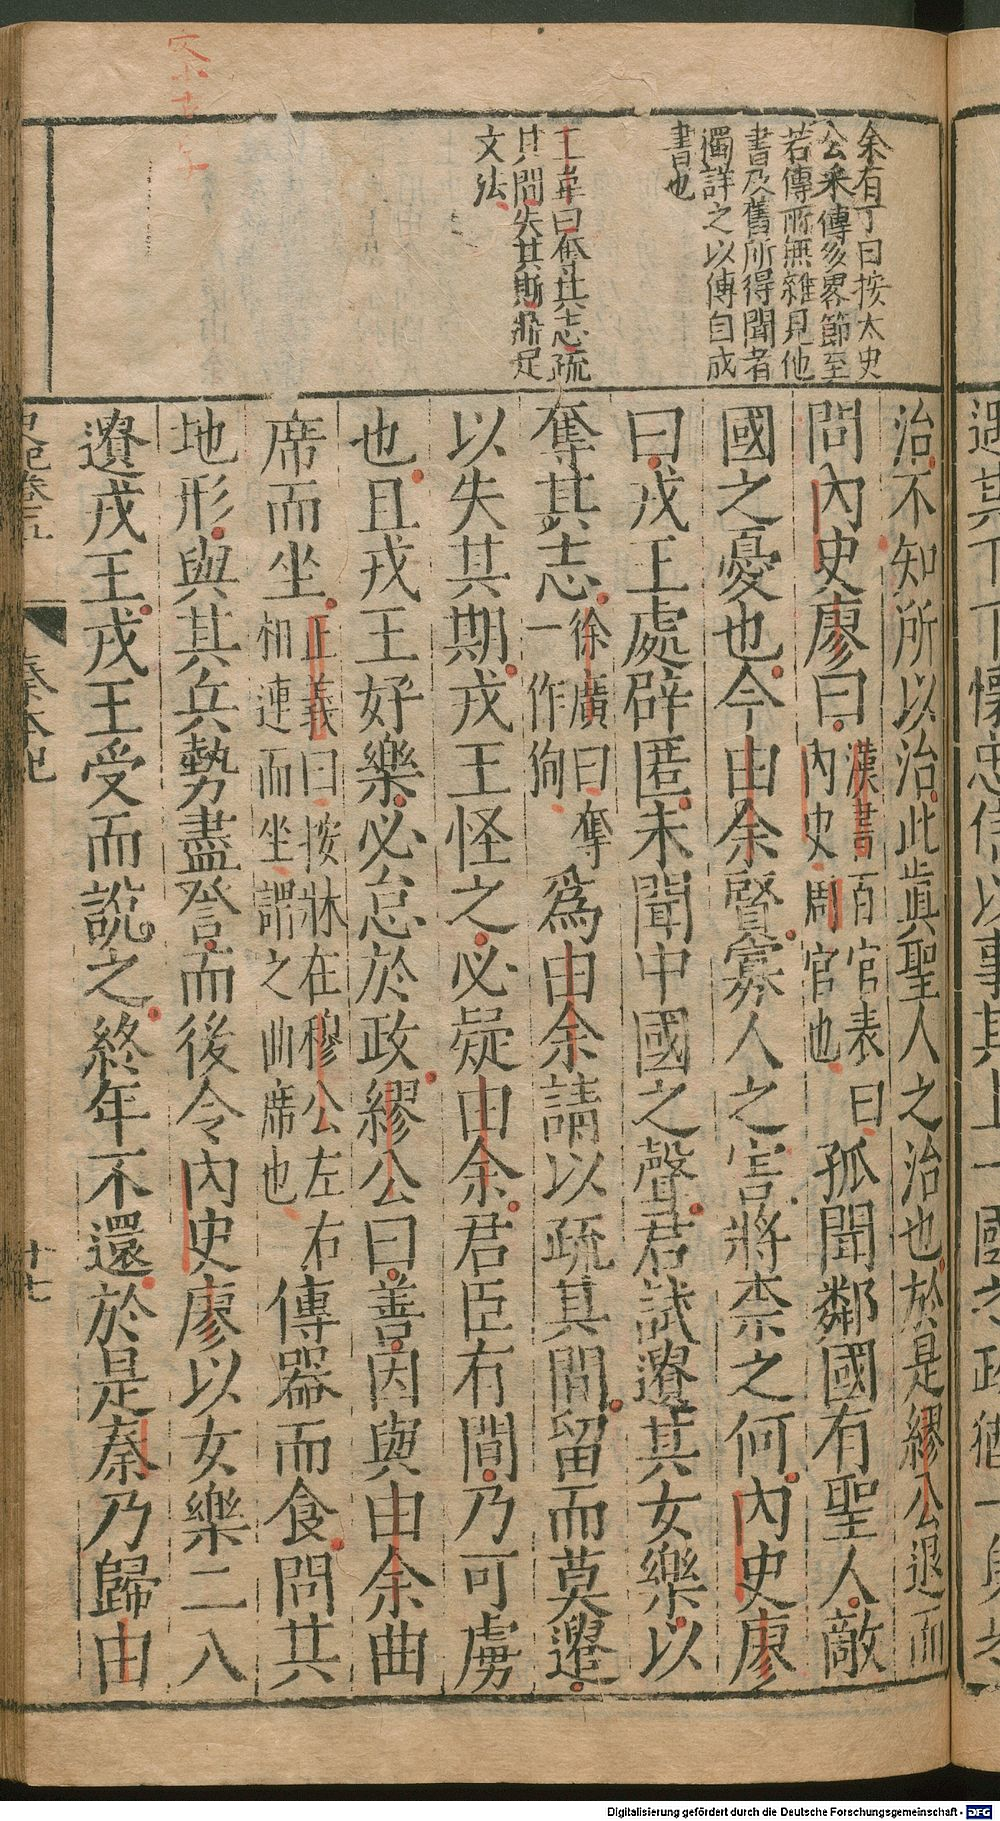 余有丁曰按太史
公采傳多畧節至
若傳所無雜見他
書及舊所得聞者
獨詳之以傳自成
書也
王韋曰奪其志疏
其間失其期鼎足
文法
治不知所以治此眞聖人之治也於是繆公退而
問內史廖曰漢書百官表曰
內史周官也孤聞鄰國有聖人敵
國之憂也今由余賢寡人之害將柰之何內史廖
曰戎王處辟匿未聞中國之聲君試遺其女樂以
奪其志徐廣曰奪
一作徇爲由余請以疏其間留而莫遣
以失其期戎王怪之必疑由余君臣有間乃可虜
也且戎王好樂必怠於政繆公曰善因與由余曲
席而坐正義曰按牀在穆公左右
相連而坐謂之曲席也傳器而食問其
地形與其兵勢盡詧而後令內史廖以女樂二八
遺戎王戎王受而說之終年不還於是秦乃歸由
史記卷五 秦本紀 十七
Digitalisierung gefördert durch die Deutsche Forschungsgemeinschaft - DFG